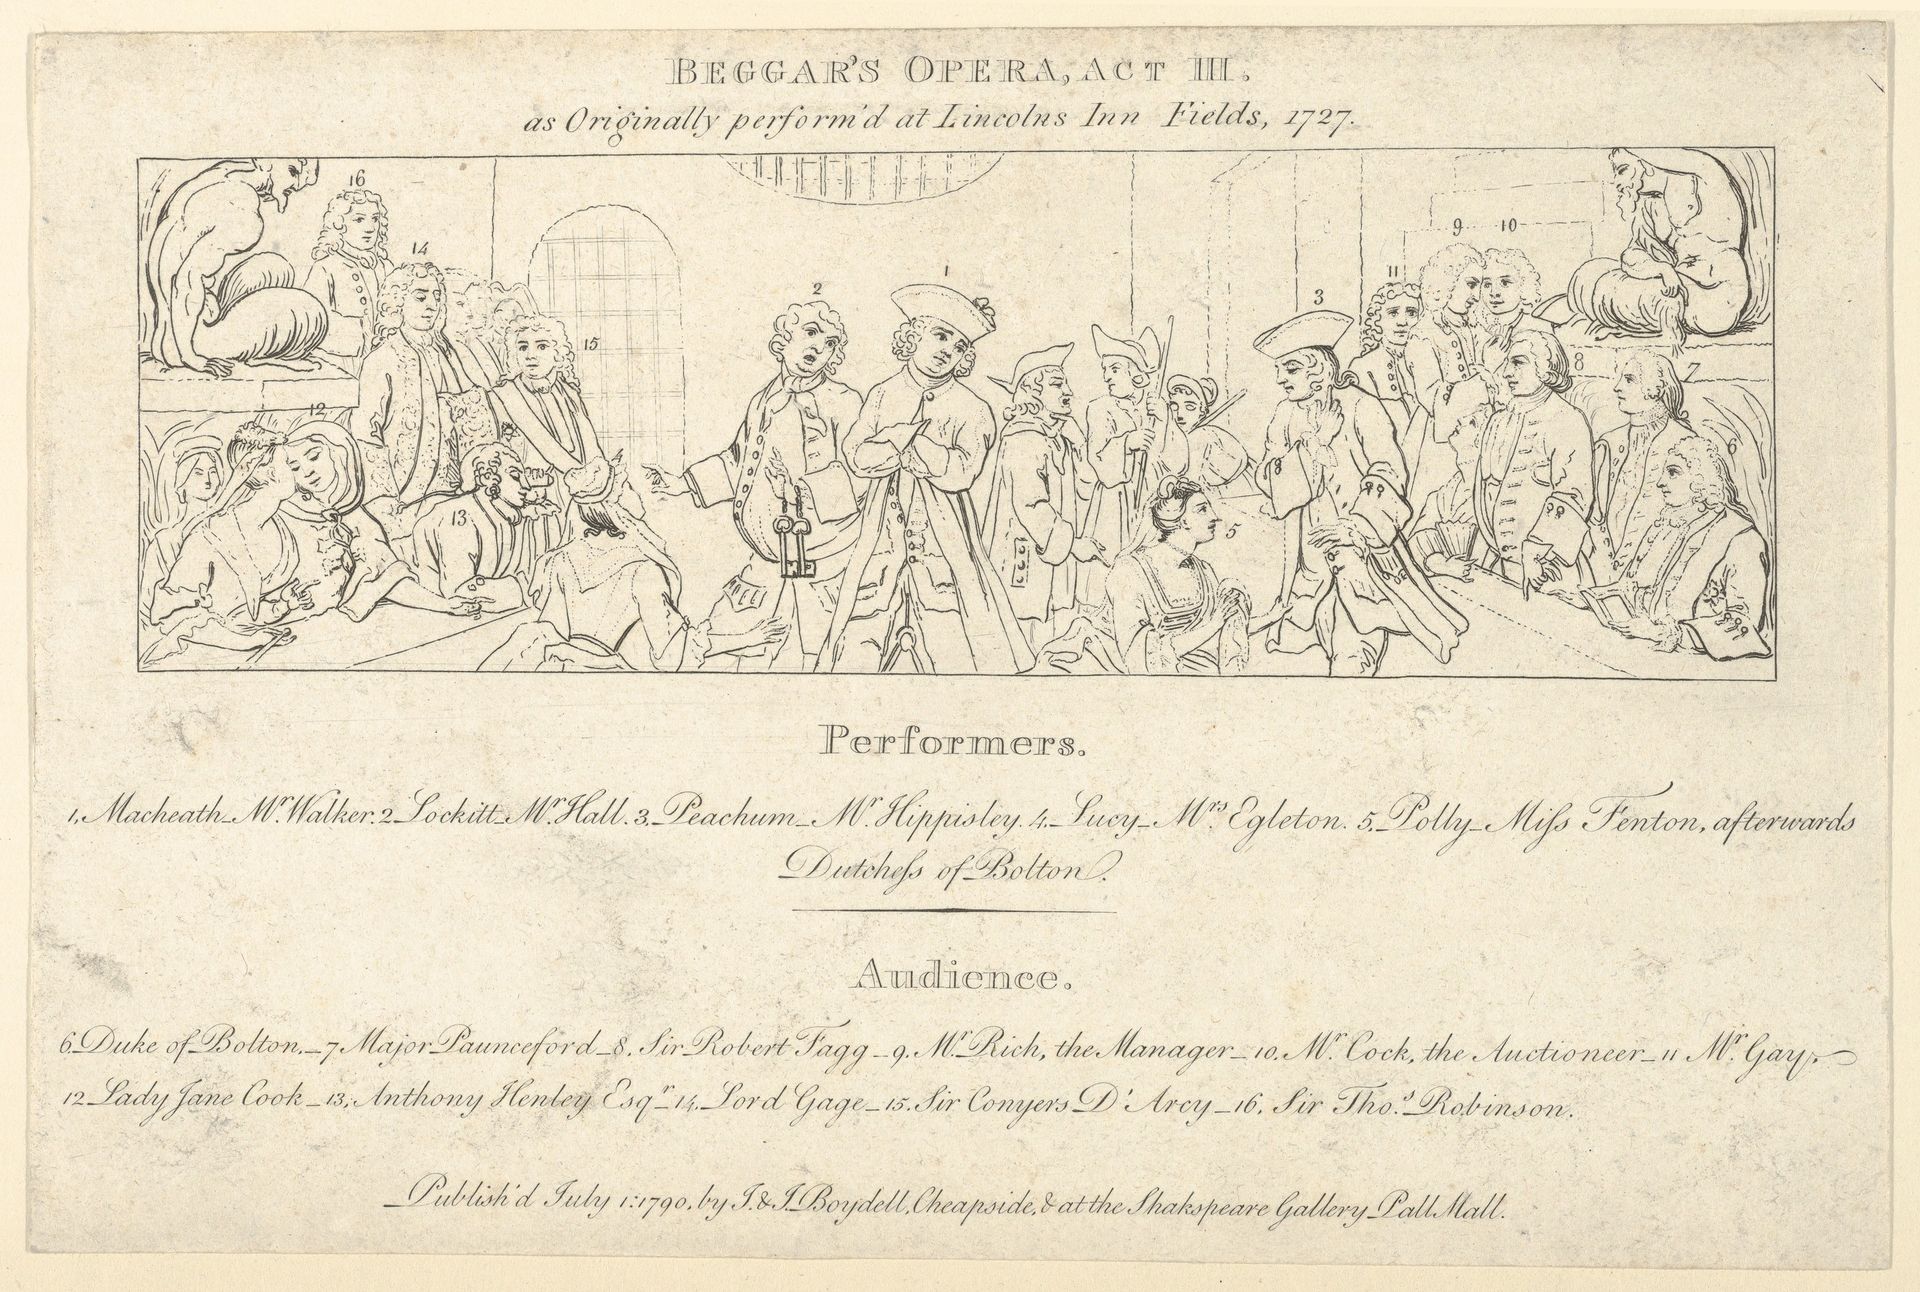 BEGGAR'S OPERA, ACT III.
as Originally perform'd at Lincolns Inn Fields, 1727.
16
14
9 10
11
1
2
3
15
8
7
12
6
13
5
Performers.
1, Macheath_Mr. Walker. 2_Lockitt_Mr. Hall. 3_Peachum_Mr. Hippisley. 4._Lucy_Mrs. Egleton. 5_Polly_Miſs Fenton, afterwards
Dutcheſs of Bolton.
Audience.
6_Duke of Bolton._7 Major Paunceford_8. Sir Robert Fagg_9. Mr. Rich, the Manager_10. Mr. Cock, the Auctioneer_11 Mr. Gay,
12_Lady Jane Cook_13, Anthony Henley Esqr._14_Lord Gage_15. Sir Conyers D'Arcy_16. Sir Tho.s Robinson.
Publish'd July 1: 1790, by J. & J. Boydell, Cheapside, & at the Shakspeare Gallery Pall Mall.